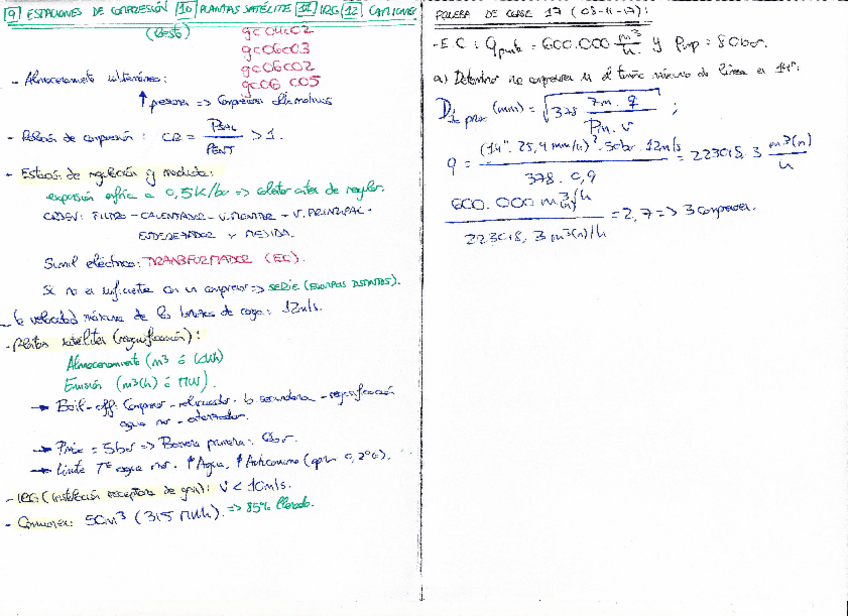 9 ESTACIONES DE COMPRESIÓN 10 PLANTAS SATÉLITE 11 IRG 12 CAMIONES
gc06c03
gc06c02
gc06 c05
- Almacenamiento subterráneo:
↑ presiones => Compresores alternativos
- Relación de compresión: CR = PSAL / PENT > 1.
- Estación de regulación y medida:
expansión enfría a 0,5K/bar => calentar antes de regular.
ORDEN: FILTRO - CALENTADOR - V. MONITOR - V. PRINCIPAL -
ENDEREZADOR Y MEDIDA.
Símil eléctrico: TRANSFORMADOR (EC).
Si no es suficiente con un compresor => SERIE (ETAPAS DISTINTAS).
- La velocidad máxima de las líneas de gas: 12m/s.
- Plantas satélites (regasificación):
Almacenamiento (m³ ó GWh)
Emisión (m³(h) ó MW).
→ Boil-off: Compresor - relicuador - b. secundaria - regasificación
agua mar - odorizador.
→ Pmáx = 5bar => Bomba primaria:
→ Límite Tª agua mar. ↑Agua, ↑Autoconsumo
- IRG (instalación receptora de gas): V < 10m/s.
- Camiones: 50m³ (315 MWh). => 85% llenado.
PRUEBA DE CLASE 17 (03-11-17):
- E.C: Qpunta = 600.000 m³/h y Pimp = 80bar.
a) Determinar no compresores si el tamaño máximo de línea es 14".
D (mm) = √ 378 Zm. q / Pm. v ;
q = (14". 25,4 mm/")². 50bar. 12m/s / 378. 0,9 = 223018,3 m³(n)/h
600.000 m³/h / 223018,3 m³(n)/h = 2,7 => 3 compresores.